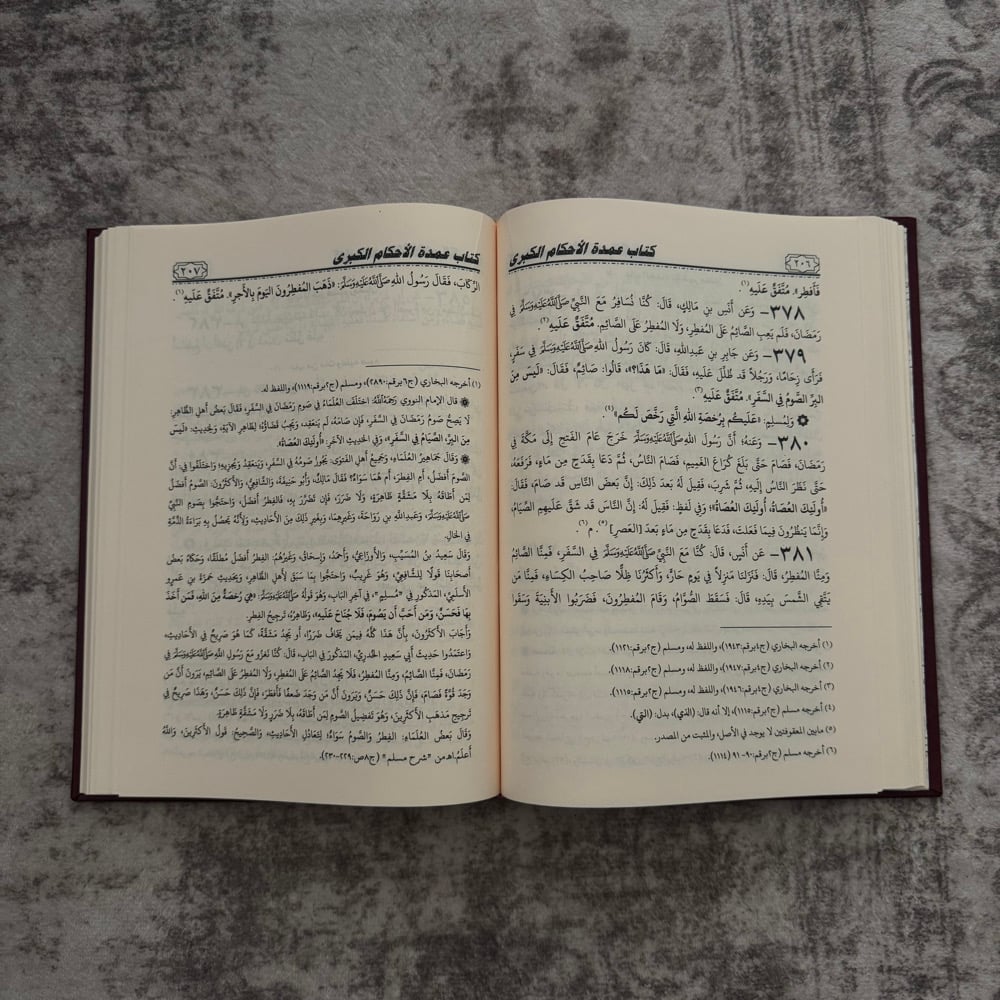 كتاب عمدة الأحكام الكبرى
٢٠٦
فَأَفطِر». مُتَّفَقٌ عَلَيهِ(١).
٣٧٨- وَعَن أَنَسِ بنِ مَالِكٍ، قَالَ: كُنَّا نُسَافِرُ مَعَ النَّبِيِّ صَلَّى اللَّهُ عَلَيْهِ وَسَلَّمَ فِي
رَمَضَانَ، فَلَم يَعِبِ الصَّائِمُ عَلَى المُفطِرِ، وَلَا المُفطِرُ عَلَى الصَّائِمِ. مُتَّفَقٌ عَلَيهِ(٢).
٣٧٩- وَعَن جَابِرِ بنِ عَبدِاللهِ، قَالَ: كَانَ رَسُولُ اللهِ صَلَّى اللَّهُ عَلَيْهِ وَسَلَّمَ فِي سَفَرٍ،
فَرَأَى زِحَامًا، وَرَجُلًا قَد ظُلِّلَ عَلَيهِ، فَقَالَ: «مَا هَذَا؟»، قَالُوا: صَائِمٌ، فَقَالَ: «لَيسَ مِنَ
البِرِّ الصَّومُ فِي السَّفَرِ». مُتَّفَقٌ عَلَيهِ(٣).
وَلِمُسلِمٍ: «عَلَيكُم بِرُخصَةِ اللهِ الَّتِي رَخَّصَ لَكُم»(٤)
٣٨٠- وَعَنهُ؛ أَنَّ رَسُولَ اللهِ صَلَّى اللَّهُ عَلَيْهِ وَسَلَّمَ خَرَجَ عَامَ الفَتحِ إِلَى مَكَّةَ فِي
رَمَضَانَ، فَصَامَ حَتَّى بَلَغَ كُرَاعَ الغَمِيمِ، فَصَامَ النَّاسُ، ثُمَّ دَعَا بِقَدَحٍ مِن مَاءٍ، فَرَفَعَهُ،
حَتَّى نَظَرَ النَّاسُ إِلَيهِ، ثُمَّ شَرِبَ، فَقِيلَ لَهُ بَعدَ ذَلِكَ: إِنَّ بَعضَ النَّاسِ قَد صَامَ، فَقَالَ:
«أُولَئِكَ العُصَاةُ، أُولَئِكَ العُصَاةُ»؛ وَفِي لَفظٍ: فَقِيلَ لَهُ: إِنَّ النَّاسَ قَد شَقَّ عَلَيهِمُ الصِّيَامُ،
وَإِنَّمَا يَنظُرُونَ فِيمَا فَعَلتَ، فَدَعَا بِقَدَحٍ مِن مَاءٍ بَعدَ [العَصرِ](٥). م(٦).
٣٨١- عَن أَنَسٍ، قَالَ: كُنَّا مَعَ النَّبِيِّ صَلَّى اللَّهُ عَلَيْهِ وَسَلَّمَ فِي السَّفَرِ، فَمِنَّا الصَّائِمُ
وَمِنَّا المُفطِرُ، قَالَ: فَنَزَلنَا مَنزِلًا فِي يَومٍ حَارٍّ، وَأَكثَرُنَا ظِلًّا صَاحِبُ الكِسَاءِ، فَمِنَّا مَن
يَتَّقِي الشَّمسَ بِيَدِهِ، قَالَ: فَسَقَطَ الصُّوَّامُ، وَقَامَ المُفطِرُونَ، فَضَرَبُوا الأَبنِيَةَ وَسَقَوا
(١) أخرجه البخاري (ج٤برقم:١٩٤٣)، واللفظ له، ومسلم (ج٢برقم:١١٢١).
(٢) أخرجه البخاري (ج٤برقم:١٩٤٧)، واللفظ له، ومسلم (ج٢برقم:١١١٨).
(٣) أخرجه البخاري (ج٤برقم:١٩٤٦)، واللفظ له، ومسلم (ج٢برقم:١١١٥).
(٤) أخرجه مسلم (ج٢برقم:١١١٥)، إلا أنه قال: (الذي)، بدل: (التي).
(٥) مابين المعقوفتين لا يوجد في الأصل، والمثبت من المصدر.
(٦) أخرجه مسلم (ج٢برقم:٩٠-٩١ (١١١٤).
كتاب عمدة الأحكام الكبرى
٢٠٧
الرِّكَابَ، فَقَالَ رَسُولُ اللهِ صَلَّى اللَّهُ عَلَيْهِ وَسَلَّمَ: «ذَهَبَ المُفطِرُونَ اليَومَ بِالأَجرِ». مُتَّفَقٌ عَلَيهِ(١).
(١) أخرجه البخاري (ج٦برقم:٢٨٩٠)، ومسلم (ج٢برقم:١١١٩)، واللفظ له.
قال الإمام النووي رَحِمَهُ اللَّهُ: اختَلَفَ العُلَمَاءُ فِي صَومِ رَمَضَانَ فِي السَّفَرِ، فَقَالَ بَعضُ أَهلِ الظَّاهِرِ:
لَا يَصِحُّ صَومُ رَمَضَانَ فِي السَّفَرِ، فَإِن صَامَهُ، لَم يَنعَقِد، وَيَجِبُ قَضَاؤُهُ؛ لِظَاهِرِ الآيَةِ، وَلِحَدِيثِ: «لَيسَ
مِنَ البِرِّ، الصِّيَامُ فِي السَّفَرِ»، وَفِي الحَدِيثِ الآخَرِ: «أُولَئِكَ العُصَاةُ».
وَقَالَ جَمَاهِيرُ العُلَمَاءِ، وَجَمِيعُ أَهلِ الفَتوَى: يَجُوزُ صَومُهُ فِي السَّفَرِ، وَيَنعَقِدُ، وَيُجزِيهِ؛ وَاختَلَفُوا فِي: أَنَّ
الصَّومَ أَفضَلُ، أَمِ الفِطرَ، أَم هُمَا سَوَاءٌ؟ فَقَالَ مَالِكٌ، وَأَبُو حَنِيفَةَ، وَالشَّافِعِيُّ، وَالأَكثَرُونَ: الصَّومُ أَفضَلُ
لِمَن أَطَاقَهُ بِلَا مَشَقَّةٍ ظَاهِرَةٍ، وَلَا ضَرَرٍ، فَإِن تَضَرَّرَ بِهِ، فَالفِطرُ أَفضَلُ، وَاحتَجُّوا بِصَومِ النَّبِيِّ
صَلَّى اللَّهُ عَلَيْهِ وَسَلَّمَ، وَعَبدِاللهِ بنِ رَوَاحَةَ، وَغَيرِهِمَا، وَبِغَيرِ ذَلِكَ مِنَ الأَحَادِيثِ، وَلِأَنَّهُ يَحصُلُ بِهِ بَرَاءَةُ الذِّمَّةِ
فِي الحَالِ.
وَقَالَ سَعِيدُ بنُ المُسَيِّبِ، وَالأَوزَاعِيُّ، وَأَحمَدُ، وَإِسحَاقُ، وَغَيرُهُم: الفِطرُ أَفضَلُ مُطلَقًا، وَحَكَاهُ بَعضُ
أَصحَابِنَا قَولًا لِلشَّافِعِيِّ، وَهُوَ غَرِيبٌ، وَاحتَجُّوا بِمَا سَبَقَ لِأَهلِ الظَّاهِرِ، وَبِحَدِيثِ حَمزَةَ بنِ عَمرٍو
الأَسلَمِيِّ، المَذكُورِ فِي "مُسلِمٍ"، فِي آخِرِ البَابِ، وَهُوَ قَولُهُ صَلَّى اللَّهُ عَلَيْهِ وَسَلَّمَ: «هِيَ رُخصَةٌ مِنَ اللهِ، فَمَن أَخَذَ
بِهَا فَحَسَنٌ، وَمَن أَحَبَّ أَن يَصُومَ، فَلَا جُنَاحَ عَلَيهِ»، وَظَاهِرُهُ، تَرجِيحُ الفِطرِ.
وَأَجَابَ الأَكثَرُونَ، بِأَنَّ هَذَا كُلَّهُ فِيمَن يَخَافُ ضَرَرًا، أَو يَجِدُ مَشَقَّةً، كَمَا هُوَ صَرِيحٌ فِي الأَحَادِيثِ،
وَاعتَمَدُوا حَدِيثَ أَبِي سَعِيدٍ الخُدرِيِّ، المَذكُورَ فِي البَابِ، قَالَ: كُنَّا نَغزُو مَعَ رَسُولِ اللهِ صَلَّى اللَّهُ عَلَيْهِ وَسَلَّمَ فِي
رَمَضَانَ، فَمِنَّا الصَّائِمُ، وَمِنَّا المُفطِرُ، فَلَا يَجِدُ الصَّائِمُ عَلَى المُفطِرِ، وَلَا المُفطِرُ عَلَى الصَّائِمِ، يَرَونَ أَنَّ مَن
وَجَدَ قُوَّةً فَصَامَ، فَإِنَّ ذَلِكَ حَسَنٌ، وَيَرَونَ أَنَّ مَن وَجَدَ ضَعفًا فَأَفطَرَ، فَإِنَّ ذَلِكَ حَسَنٌ، وَهَذَا صَرِيحٌ فِي
تَرجِيحِ مَذهَبِ الأَكثَرِينَ، وَهُوَ تَفضِيلُ الصَّومِ لِمَن أَطَاقَهُ، بِلَا ضَرَرٍ وَلَا مَشَقَّةٍ ظَاهِرَةٍ.
وَقَالَ بَعضُ العُلَمَاءِ: الفِطرُ وَالصَّومُ سَوَاءٌ؛ لِتَعَادُلِ الأَحَادِيثِ، وَالصَّحِيحُ: قَولُ الأَكثَرِينَ، وَاللهُ
أَعلَمُ.اهـ من "شرح مسلم" (ج٨ص:٢٢٩-٢٣٠).